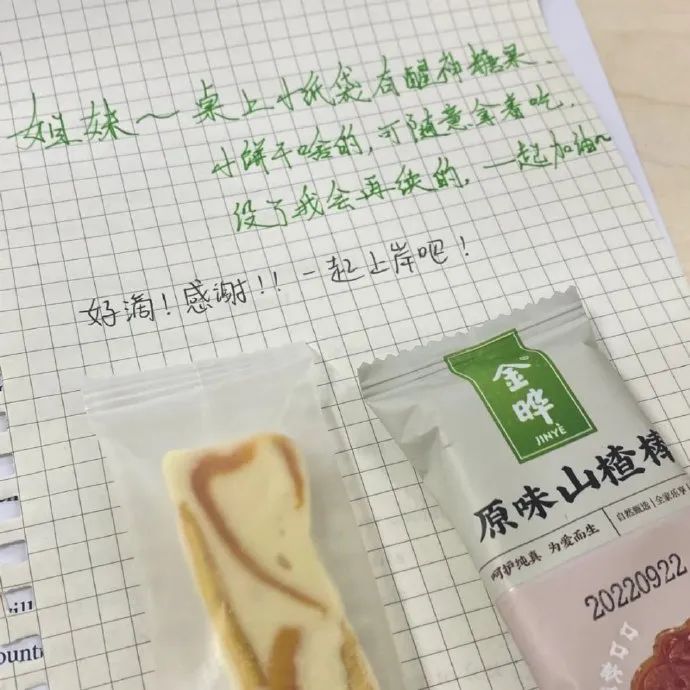 姐妹~桌上小纸袋有醒神糖果、
小饼干啥的,可随意拿着吃.
没了我会再续的,一起加油~
好滴!感谢!!一起上岸吧!
金晔
JINYE
原味山楂棒
呵护纯真 为爱而生
自然甄选|全家乐享
20220922
口口
ill
ount